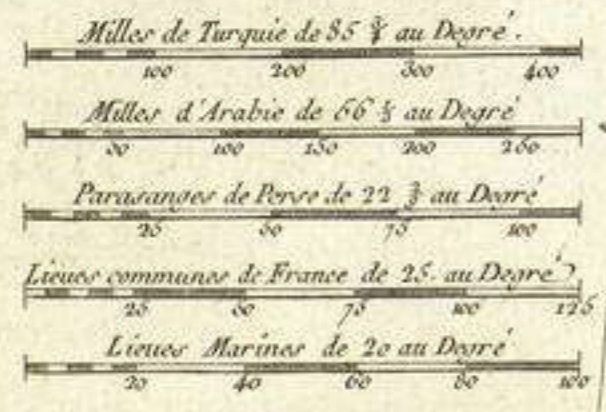 Milles de Turquie de 85 ¾ au Degré.
100 200 300 400
Milles d'Arabie de 56 ⅔ au Degré
50 100 150 200 250
Parasanges de Perse de 22 ⅔ au Degré
25 50 75 100
Lieues communes de France de 25 au Degré
25 50 75 100 125
Lieues Marines de 20 au Degré
20 40 60 80 100